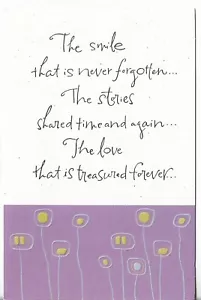 The smile
that is never forgotten...
The stories
shared time and again...
The love
that is treasured forever..